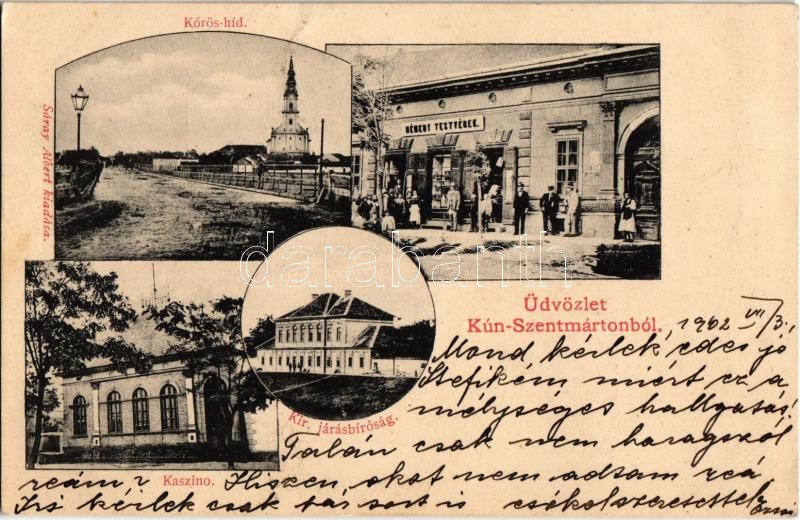 Kőrös-híd.
Sáray Albert kiadása.
HÉBERT TESTVÉREK.
darabanth
Üdvözlet
Kún-Szentmártonból.
1902 VII/3.
Kir. járásbíróság.
Kaszino.
Mond kérlek édes jó
Stefikém miért ez a
mélységes hallgatás!
Talán csak nem haragszol
reám? Hiszen okot nem adtam reá
Írj kérlek csak pár sort is csókol szeretettel